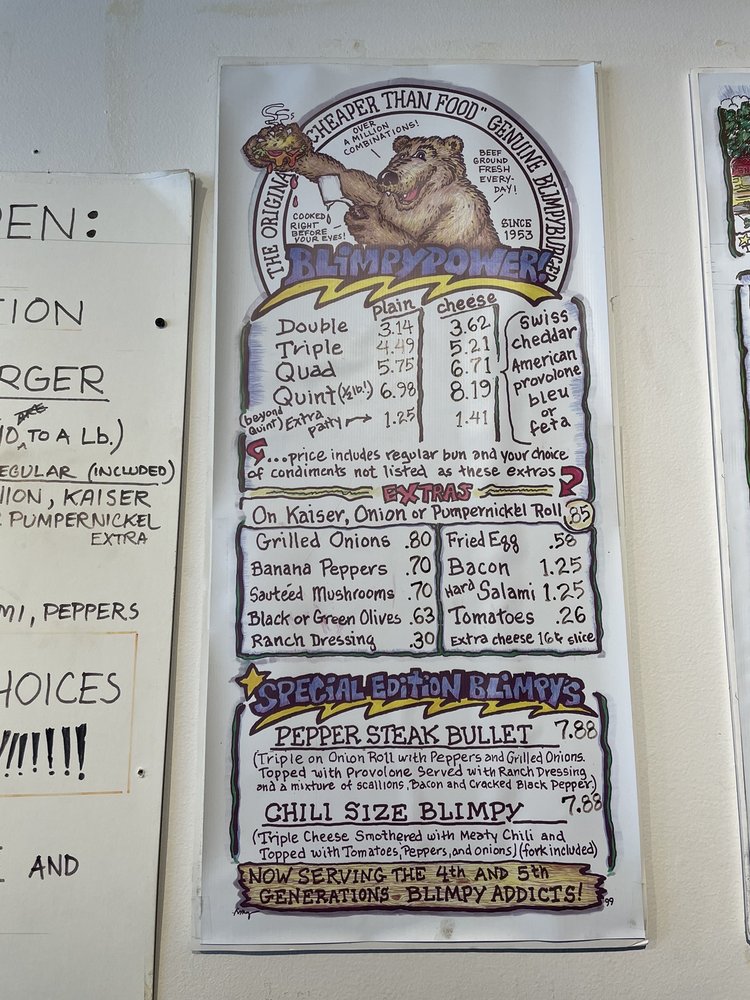 PEN:
TION
RGER
TO A Lb.)
EGULAR (INCLUDED)
NION, KAISER
PUMPERNICKEL
EXTRA
MI, PEPPERS
HOICES
!!!!!!
AND
THE ORIGINAL "CHEAPER THAN FOOD" GENUINE BLIMPYBURGER
OVER
A MILLION
COMBINATIONS!
BEEF
GROUND
FRESH
EVERY-
DAY!
COOKED
RIGHT
BEFORE
YOUR EYES!
SINCE
1953
BLIMPYPOWER!
plain cheese
Double 3.14 3.62
Triple 4.49 5.21
Quad 5.75 6.71
Quint (½ lb.!) 6.98 8.19
(beyond Quint) Extra patty → 1.25 1.41
Swiss
cheddar
American
provolone
bleu
or
feta
...price includes regular bun and your choice
of condiments not listed as these extras
EXTRAS
On Kaiser, Onion or Pumpernickel Roll .85
Grilled Onions .80
Banana Peppers .70
Sautéed Mushrooms .70
Black or Green Olives .63
Ranch Dressing .30
Fried Egg .58
Bacon 1.25
Hard Salami 1.25
Tomatoes .26
Extra cheese 16¢ slice
SPECIAL EDITION BLIMPY'S
PEPPER STEAK BULLET 7.88
(Triple on Onion Roll with Peppers and Grilled Onions.
Topped with Provolone Served with Ranch Dressing
and a mixture of scallions, Bacon and Cracked Black Pepper.)
CHILI SIZE BLIMPY 7.88
(Triple Cheese Smothered with Meaty Chili and
Topped with Tomatoes, Peppers, and onions) (fork included)
NOW SERVING THE 4th AND 5th
GENERATIONS BLIMPY ADDICTS!
99